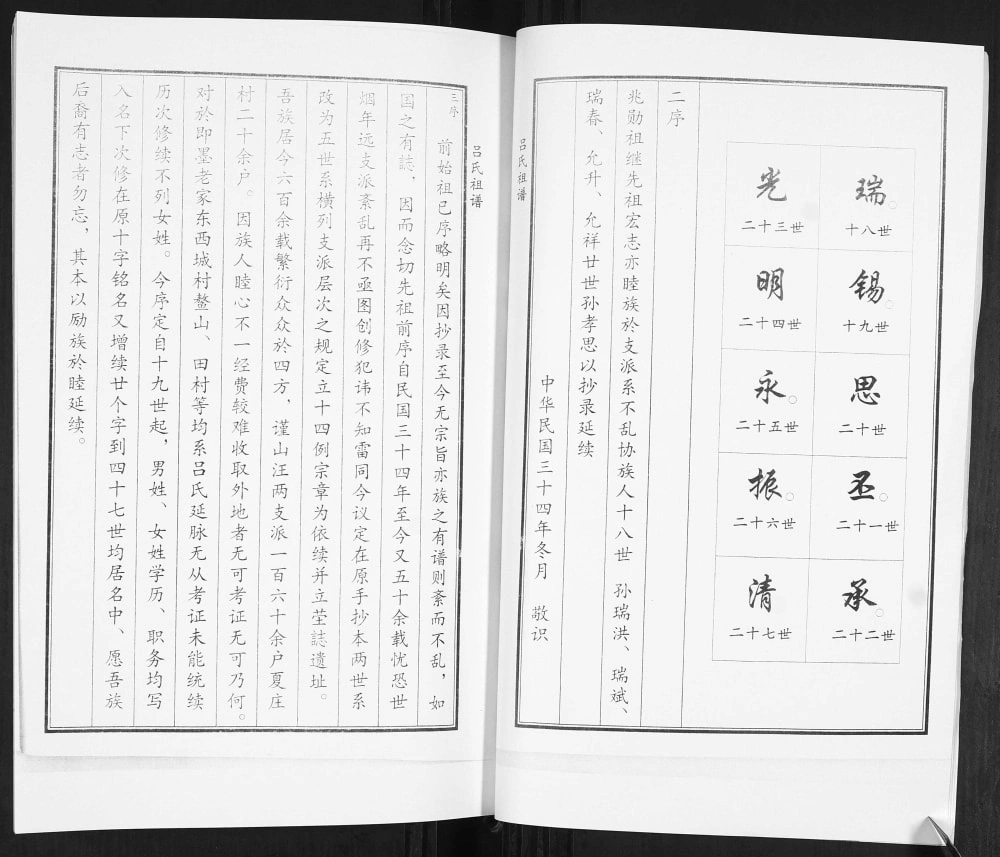 瑞
十八世
锡
十九世
思
二十世
丞
二十一世
承
二十二世
光
二十三世
明
二十四世
永
二十五世
振
二十六世
清
二十七世
二序
兆勋祖继先祖宏志亦睦族於支派系不乱协族人十八世 孙瑞洪、瑞斌、
瑞春、允升、允祥廿世孙孝思以抄录延续
中华民国三十四年冬月 敬识
吕氏祖谱
吕氏祖谱
三序
前始祖已序略明矣因抄录至今无宗旨亦族之有谱则紊而不乱，如
国之有誌，因而念切先祖前序自民国三十四年至今又五十余载忧恐世
烟年远支派紊乱再不亟图创修犯讳不知雷同今议定在原手抄本两世系
改为五世系横列支派层次之规定立十四例宗章为依续并立茔誌遗址。
吾族居今六百余载繁衍众众於四方，谨山汪两支派一百六十余户夏庄
村二十余户。因族人睦心不一经费较难收取外地者无可考证无可乃何。
对於即墨老家东西城村鳌山、田村等均系吕氏延脉无从考证未能统续
历次修续不列女姓。今序定自十九世起，男姓、女姓学历、职务均写
入名下次修在原十字铭名又增续廿个字到四十七世均居名中、愿吾族
后裔有志者勿忘，其本以励族於睦延续。